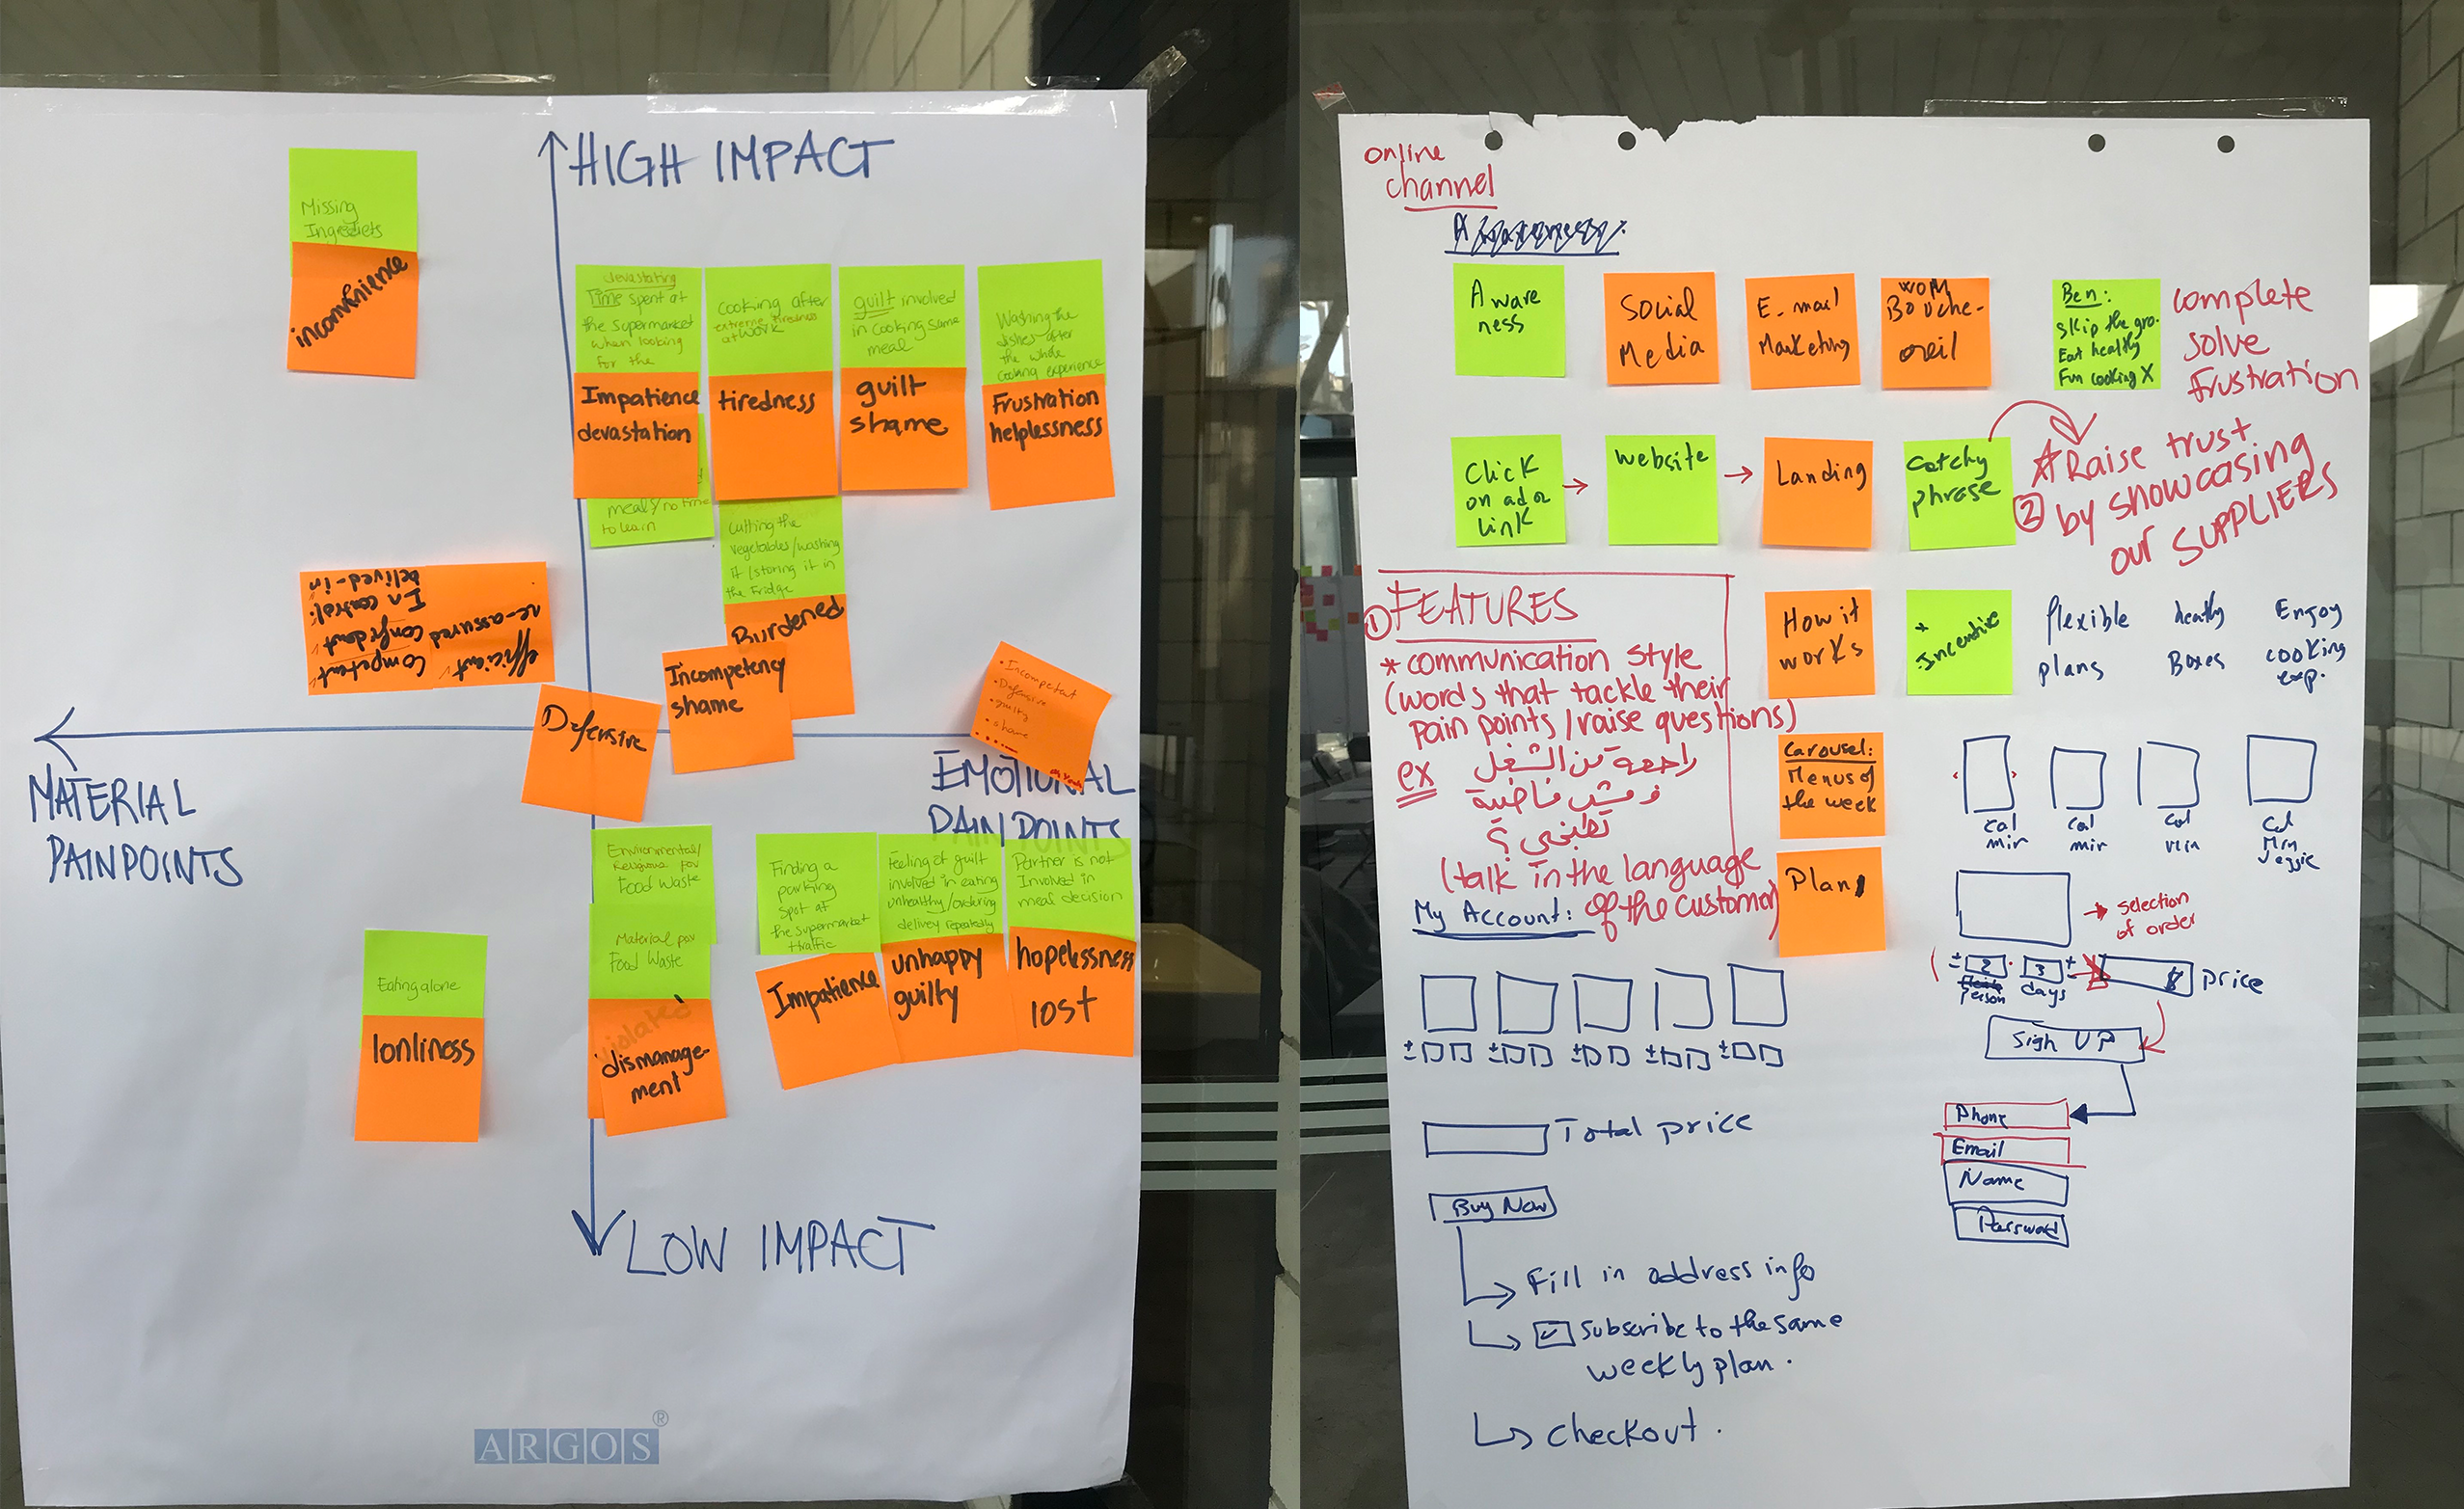 HIGH IMPACT
Missing
Ingredients
inconvenience
devastating
Time spent at
the supermarket
when looking
for the
Impatience
devastation
meals/no time
to learn
Cooking after
extreme tiredness
at work
tiredness
guilt involved
in cooking same
meal
guilt
shame
Washing the
dishes after
the whole
cooking experience
Frustration
helplessness
Cutting the
vegetables/washing
it/storing it in
the Fridge
Burdened
Incompetency
shame
Defensive
Competent
confident
In control
belived-in
efficient
re-assured
• Incompetent
• Defensive
• guilty
• shame
MATERIAL
PAINPOINTS
EMOTIONAL
PAINPOINTS
Environmental/
Religious pov
Food Waste
Material pov
Food Waste
dismanage-
ment
Finding a
parking
spot at
the supermarket
traffic
Impatience
Feeling of guilt
involved in eating
unhealthy/ordering
delivery repeatedly
unhappy
guilty
Partner is not
Involved in
meal decision
hopelessness
lost
Eating alone
lonliness
LOW IMPACT
ARGOS®
online
channel
Awareness:
Aware
ness
Social
Media
E-mail
Marketing
WOM
Bouche-
oreil
Ben:
Skip the gro.
Eat healthy
Fun cooking X
complete
solve
frustration
Click
on ad or
link
website
Landing
Catchy
phrase
② Raise trust
by showcasing
our SUPPLIERS
① FEATURES
* communication style
(words that tackle their
pain points/raise questions)
ex راجعة من الشغل
و مش فاضية
تطبخي ؟
(talk in the language
of the customer)
How it
works
+
Incentive
flexible
plans
healthy
Boxes
Enjoy
cooking
exp.
Carousel:
Menus of
the week
Cal
min
Cal
min
Cal
min
Cal
Min
Veggie
Plan
selection
of order
± 2 . 3 +
person days
$ price
Sign UP
Phone
Email
Name
Password
My Account:
Total price
Buy Now
Fill in address info
Subscribe to the same
weekly plan.
checkout.